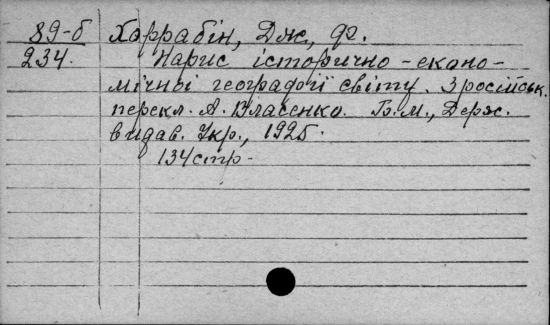 89-б Харрабін, Дж, Ф.
234. Нарис історично-еконо-
мічної географії світу. З російськ.
перекл. А. Власенко. Б.М., Держ.
видав. Укр., 1925.
134 стр.